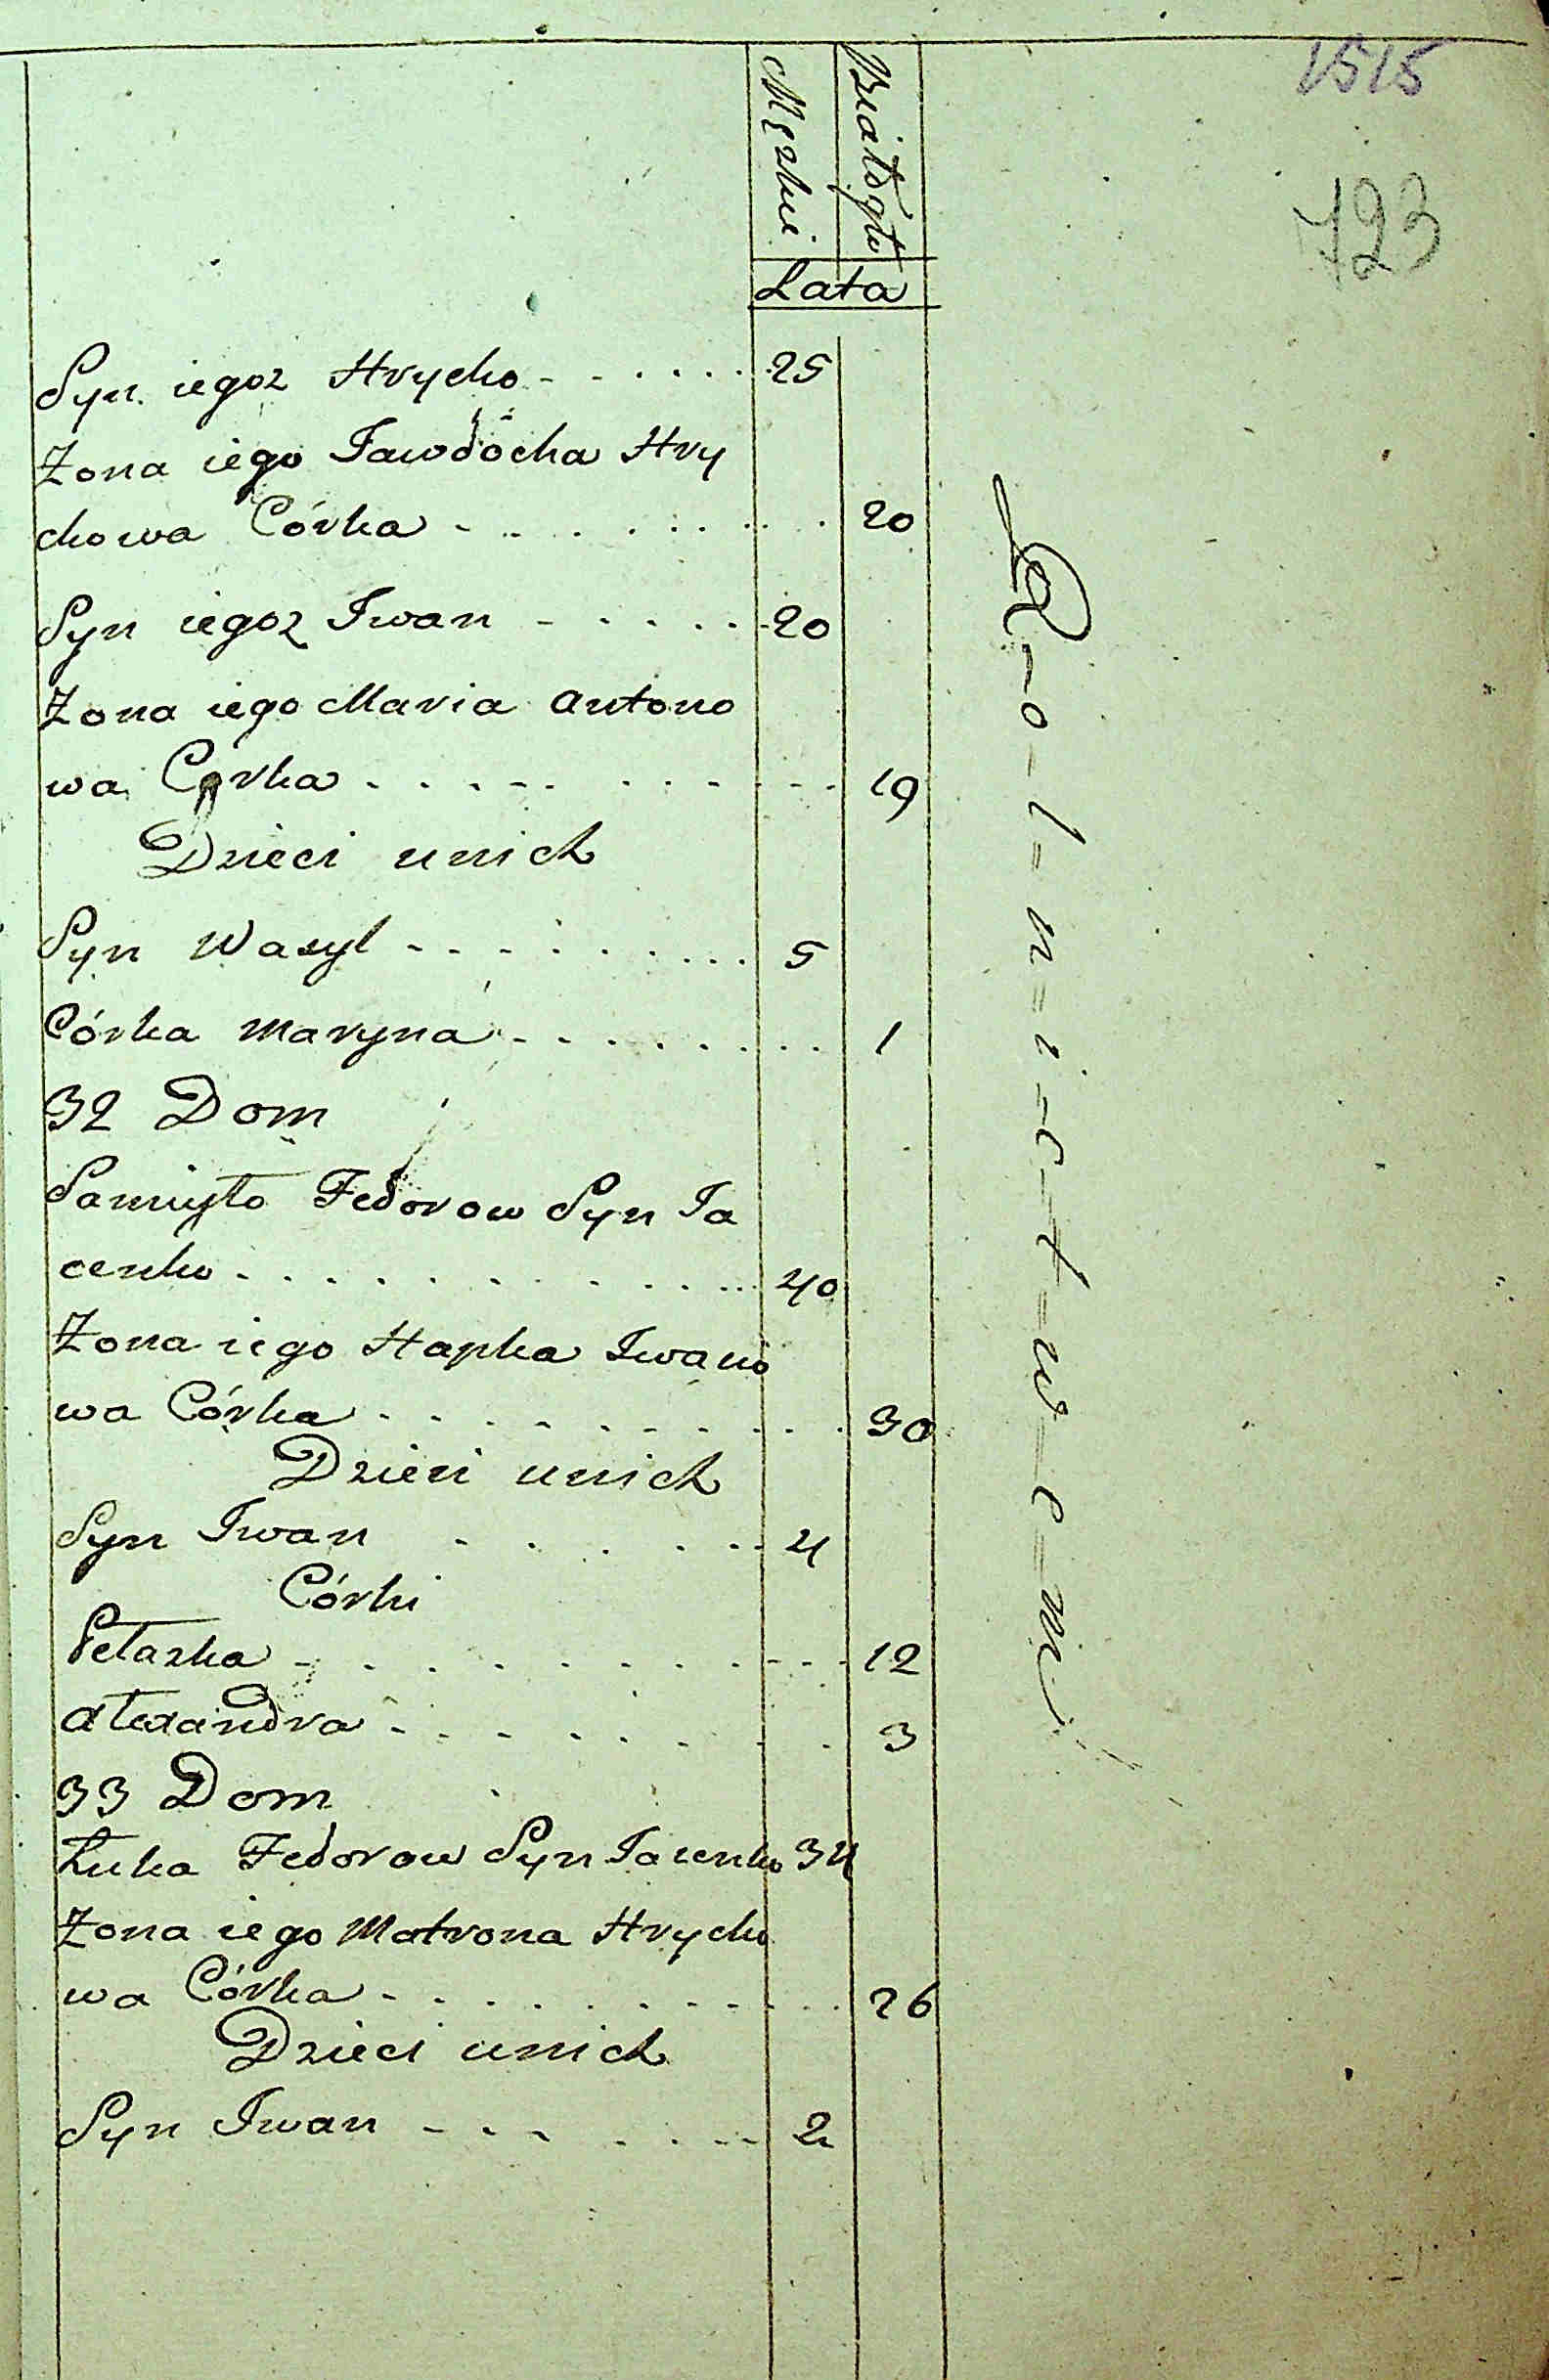 1515
723
Męzkie
Białogło
Lata
Syn iegoz Hrycko - - . . . . 25
Zona iego Jawdocha Hry
ckowa Córka - . . . . . . . 20
Syn iegoz Iwan - . . . . 20
Zona iego Maria Antono
wa Corka . . . - - . . . - - . 19
Dzieci unich
Syn Wasyl - - - . . . . . . . 5
Córka Maryna . - . . . . . . . 1
32 Dom
Samuyło Fedorow Syn Ja
cenko . . . . . . . . . . . . 40
Zona iego Hapka Iwano
wa Córka . . . . . . . . . . 30
Dzieci unich
Syn Iwan - . . . . - - 4
Córki
Pełazka - . . . . . . . . - - - 12
Alexandra - . - . . . . . 3
33 Dom
Łuka Fedorow Syn Jacenko 34
Zona iego Matrona Hrycko
wa Córka - - . . . . . . . . 26
Dzieci unich
Syn Iwan - - - . . - - 2
R-o-l-n-i-c-t-w-e-m